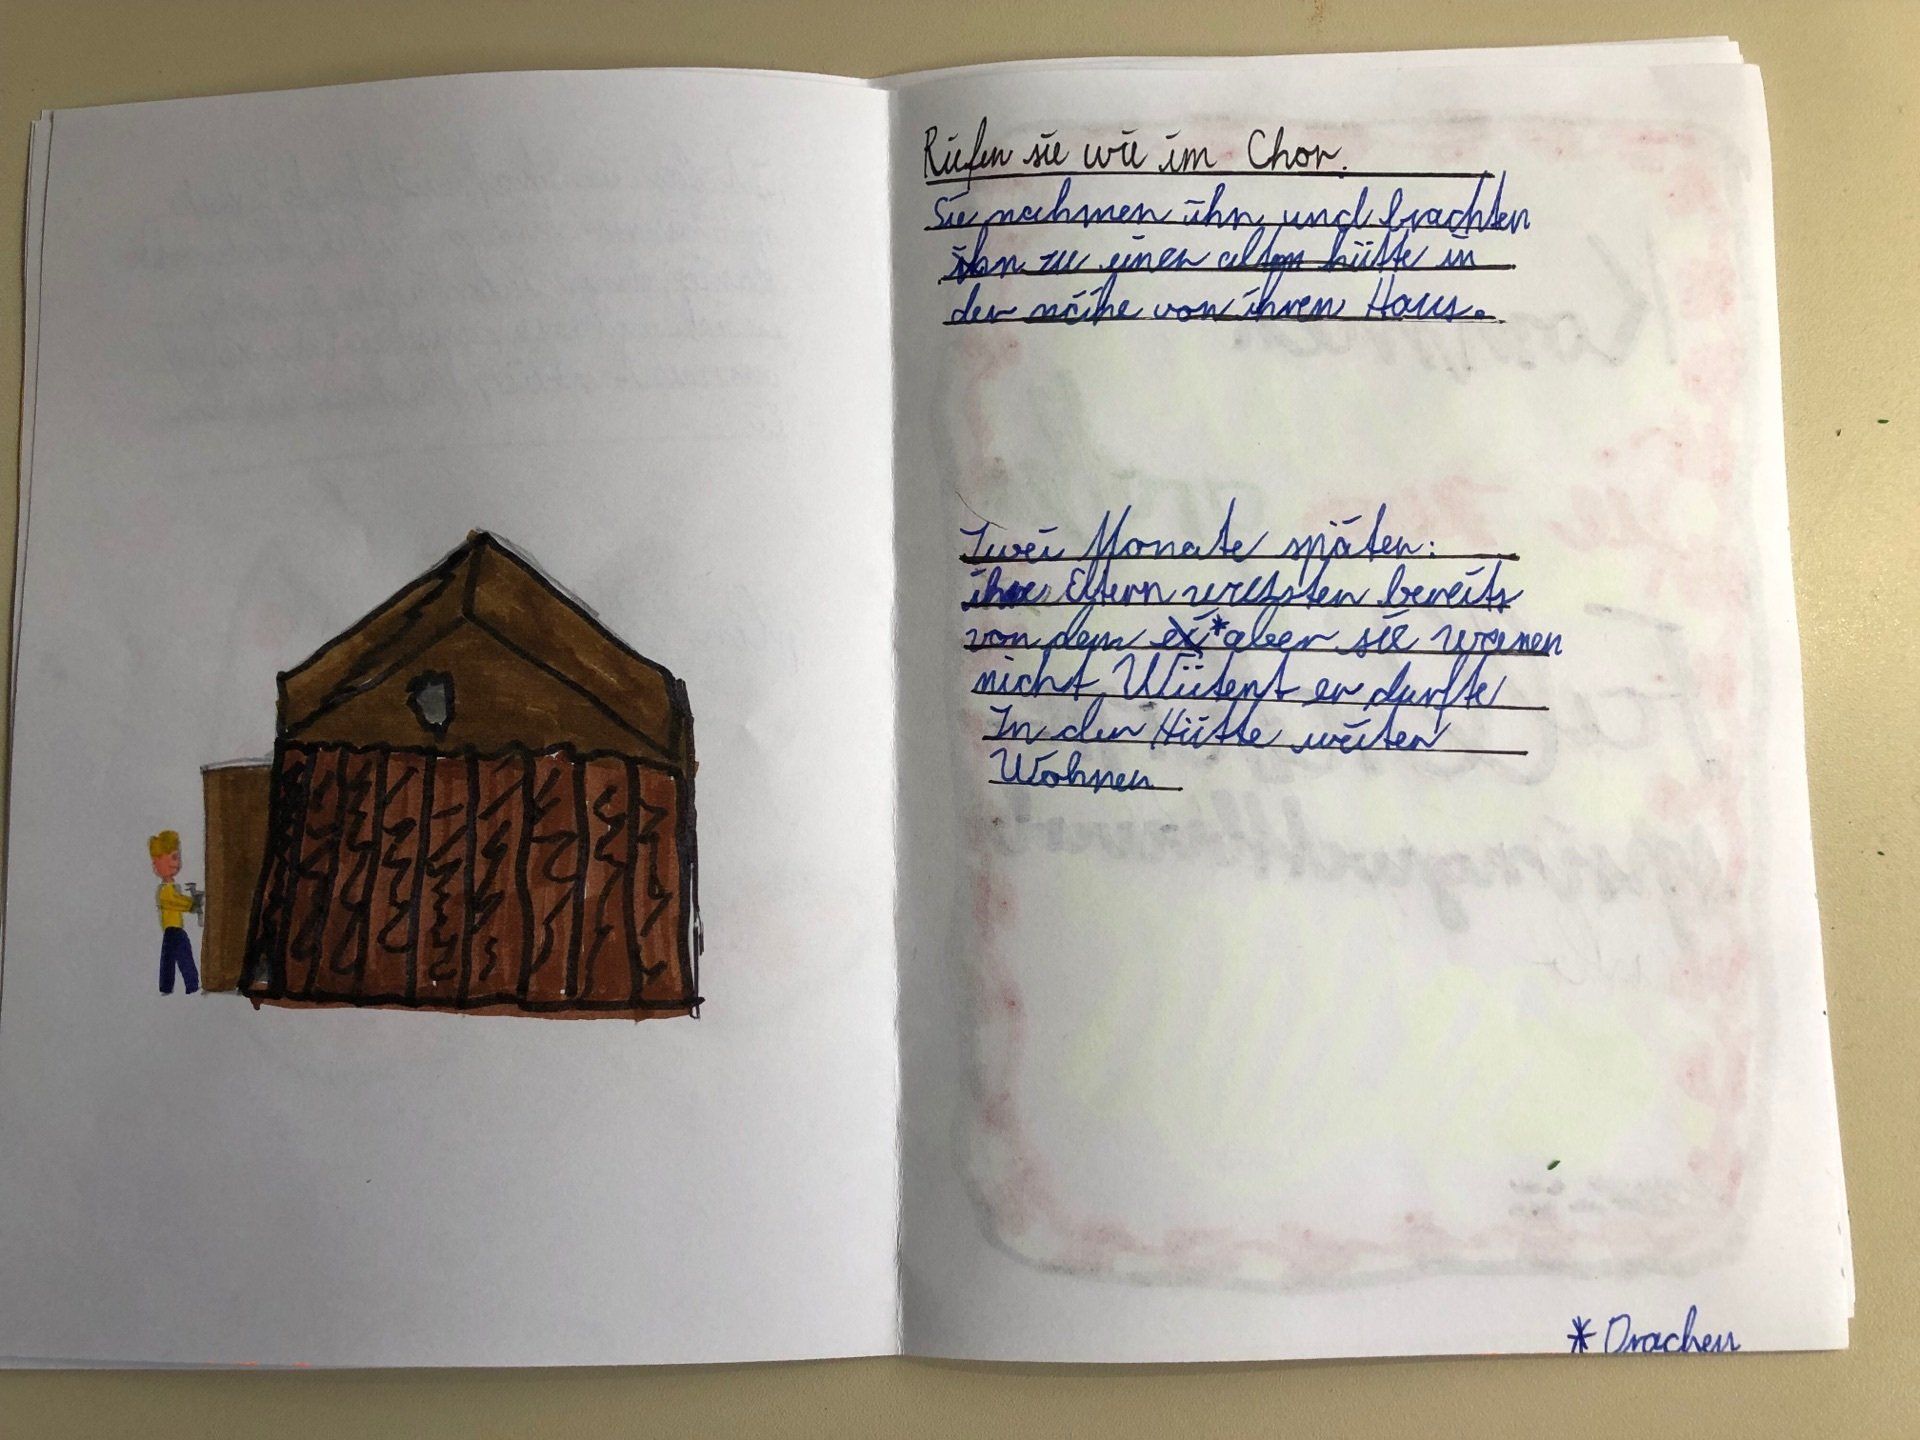 Riefen sie wie im Chor.
Sie nahmen ihn und brachten
ihn zu einer alten hütte in
der nähe von ihren Haus.
Zwei Monate später:
ihre Eltern wussten bereits
von dem * aber sie waren
nicht Wütent er durfte
In der Hütte weiter
Wohnen
* Drachen